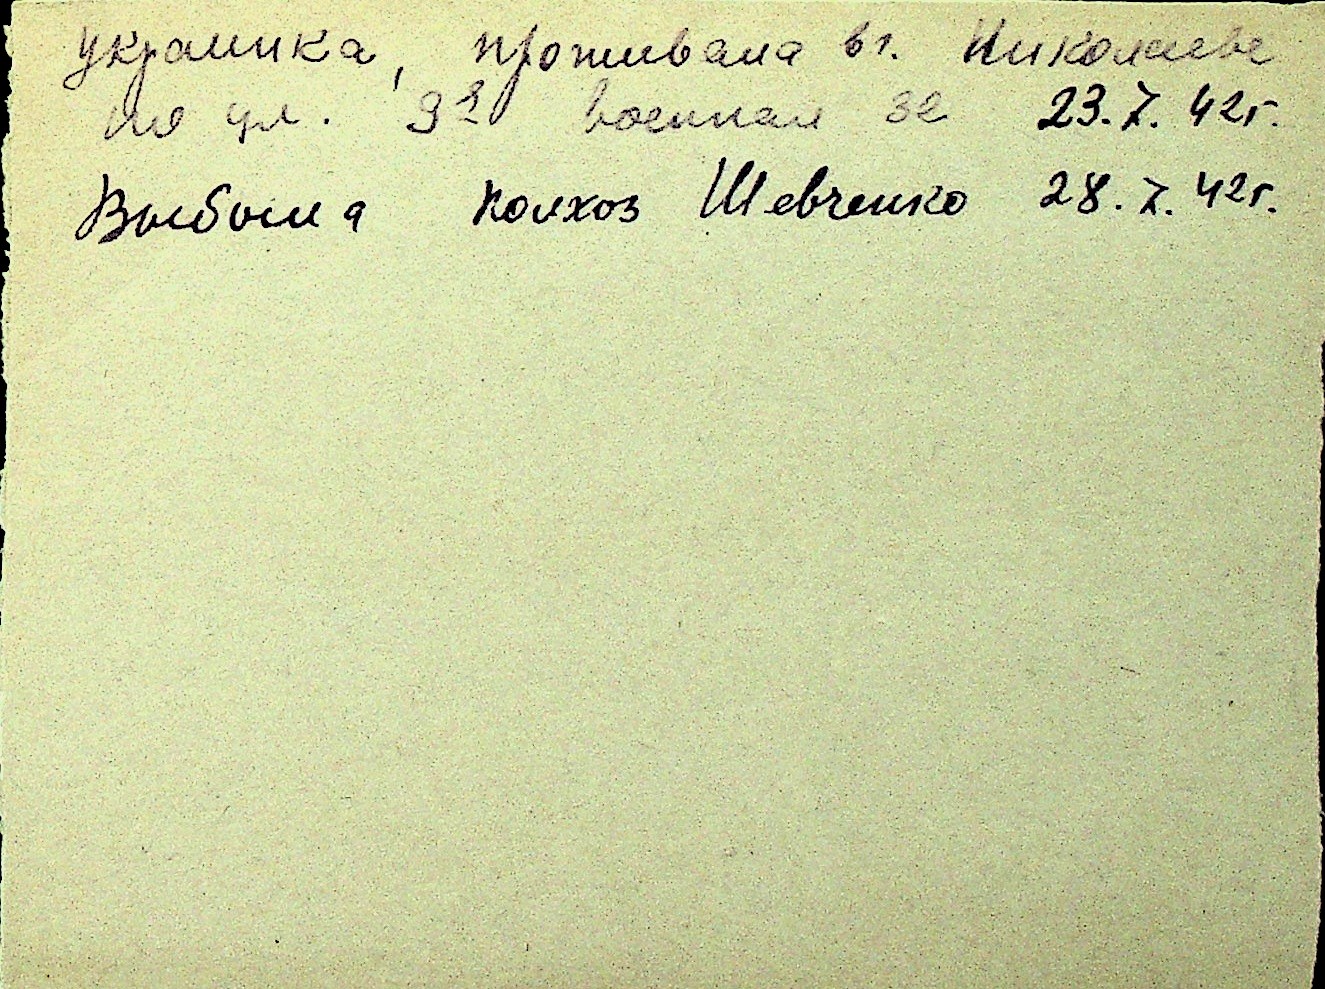 украинка, проживала в г. Николаеве
по ул. 9я военная 32 23.7.42г.
Выбыла колхоз Шевченко 28.7.42г.